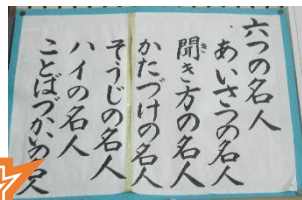 六つの名人
あいさつの名人
聞き方の名人
かたづけの名人
そうじの名人
ハイの名人
ことばづかいの名人